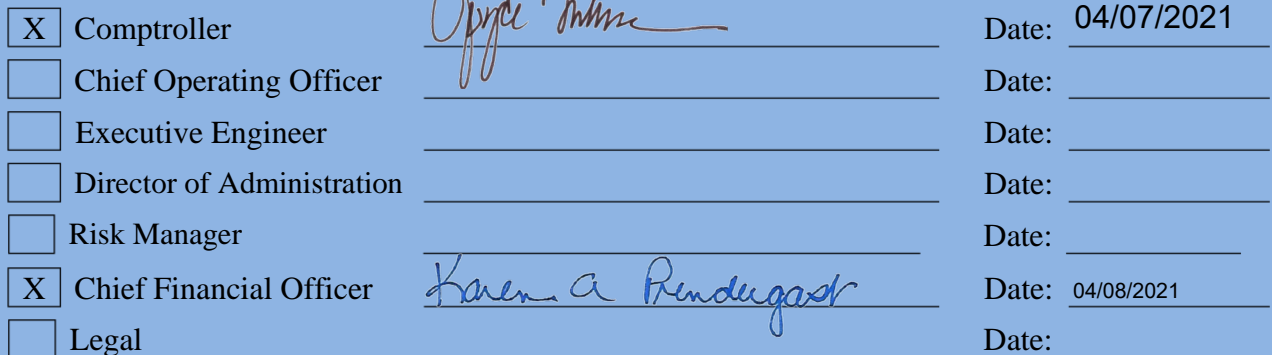 X Comptroller Date: 04/07/2021
Chief Operating Officer Date:
Executive Engineer Date:
Director of Administration Date:
Risk Manager Date:
X Chief Financial Officer Karen A Prendergast Date: 04/08/2021
Legal Date: